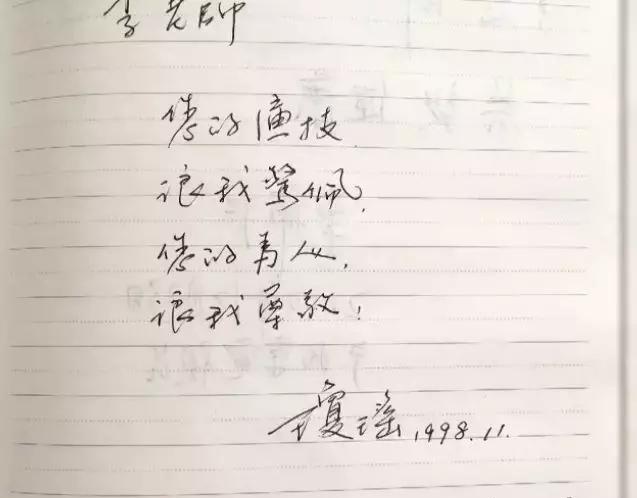 李老師
您的演技
讓我驚佩,
您的為人,
讓我尊敬!
瓊瑤 1998.11.